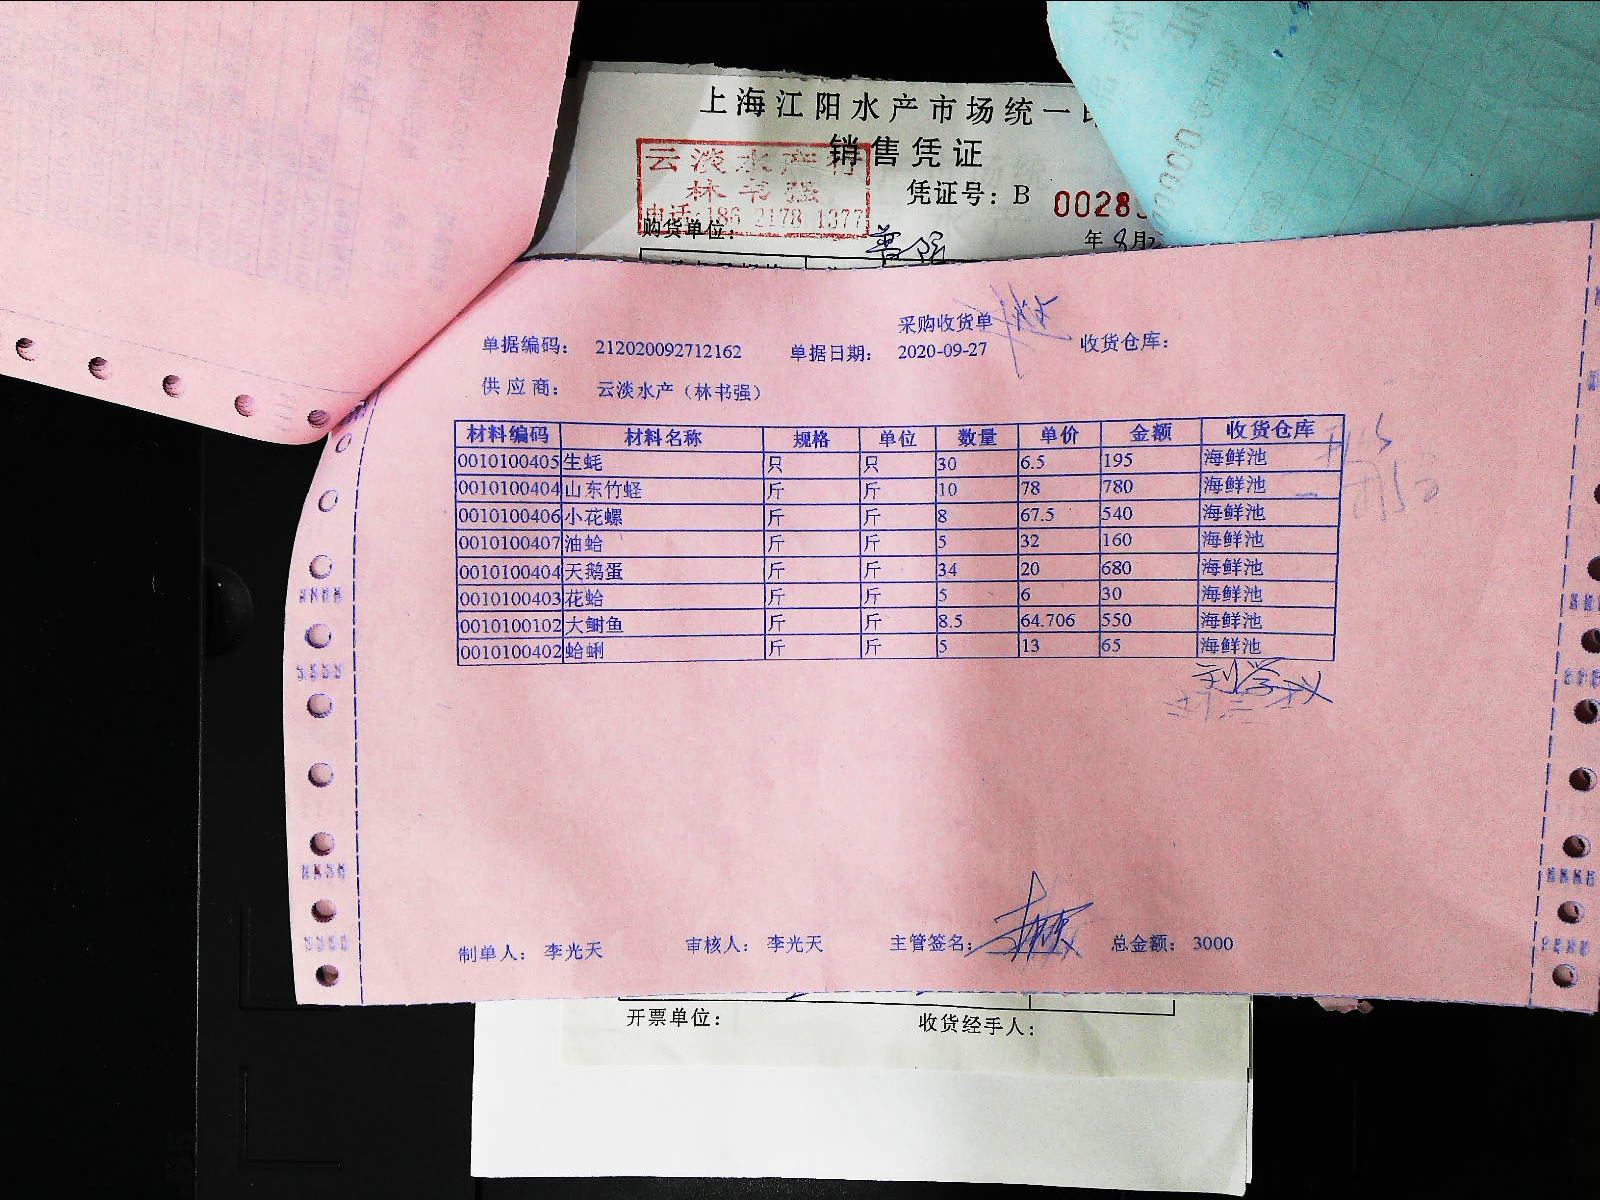 上海江阳水产市场统一
销售凭证
云淡水产行
林书强
电话:186 2178 1377
凭证号：B 0028
购货单位：
年 8月
采购收货单
单据编码： 212020092712162 单据日期： 2020-09-27 收货仓库：
供应商： 云淡水产（林书强）
材料编码 材料名称 规格 单位 数量 单价 金额 收货仓库
0010100405 生蚝 只 只 30 6.5 195 海鲜池
0010100404 山东竹蛏 斤 斤 10 78 780 海鲜池
0010100406 小花螺 斤 斤 8 67.5 540 海鲜池
0010100407 油蛤 斤 斤 5 32 160 海鲜池
0010100404 天鹅蛋 斤 斤 34 20 680 海鲜池
0010100403 花蛤 斤 斤 5 6 30 海鲜池
0010100102 大鲥鱼 斤 斤 8.5 64.706 550 海鲜池
0010100402 蛤蜊 斤 斤 5 13 65 海鲜池
制单人： 李光天 审核人： 李光天 主管签名： 总金额： 3000
开票单位： 收货经手人：